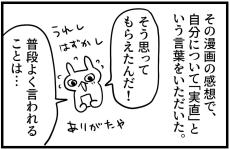 その漫画の感想で、
自分について「実直」と
いう言葉をいただいた。
そう思って
もらえたんだ！
うれし
はずかし
ありがたや
普段よく言われる
ことは…